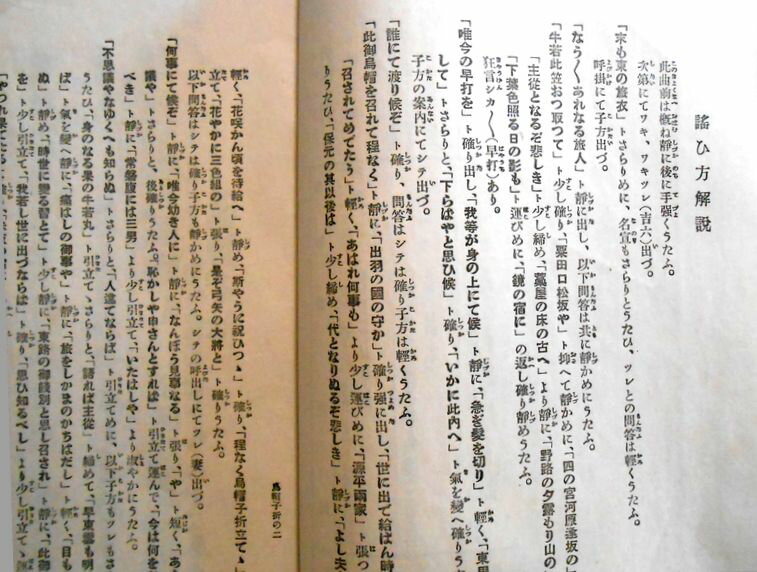 謠ひ方解説
此曲前は概ね靜に後に手强くうたふ。
次第にてワキ、ワキツレ(吉六)出づ。
「末も東の旅衣」トさらりめに、名宣もさらりとうたひ、ツレとの問答は輕くうたふ。
呼掛にて子方出づ。
「なう〳〵あれなる旅人」ト靜に出し、以下問答は共に靜かめにうたふ。
「牛若此笠おつ取つて」ト少し確り、「粟田口松坂や」ト抑へて靜かめに、「四の宮河原逢坂の」
「主從となるぞ悲しき」ト少し締め、「藁屋の床の古へ」より靜に、「野路の夕露もり山の
「下葉色照る日の影も」ト運びめに、「鏡の宿に」の返し確り靜めうたふ。
狂言シカ〳〵(早打)あり。
「唯今の早打を」ト確り出し、「我等が身の上にて候」ト靜に、「急ぎ髮を切り」ト輕く、「東男
して」トさらりと、「下らばやと思ひ候」ト確り、「いかに此内へ」ト氣を變へ確りう
子方の案内にてシテ出づ。
「誰にて渡り候ぞ」ト確り、問答はシテは確り子方は輕くうたふ。
「此御烏帽を召されて程なく」ト靜に、「出羽の國の守か」ト確り强に出し、「世に出で給はん時
「召されてめでたう」ト輕く、「あはれ何事も」より少し運びめに、「源平兩家」ト張つ
りうたひ、「保元の其以後は」ト少し締め、「代となりぬるぞ悲しき」ト靜に、「よし夫
烏帽子折の二
輕く、「花咲かん頃を待給へ」ト靜め、「斯やうに祝ひつゝ」ト確り、「程なく烏帽子折立てゝ」
立て、「花やかに三色組の」ト張り、「是ぞ弓矢の大將と」ト確りうたふ。
以下問答はシテは確り子方も靜かめにうたふ。シテの呼出しにてツレ(妻)出づ。
「何事にて候ぞ」ト靜に、「唯今幼き人に」ト靜に、「なんぼう見事なる」ト張り、「や」ト短く、「あ
議や」トさらりと、後確りうたふ。「恥かしや申さんとすれば」ト引立て運んで、「今は何を
べき」ト靜に、「常磐腹には三男」より少し引立て、「いたはしや」より淑やかにうたふ。
「不思議やなゆくへも知らぬ」トさらりと、「人違てならば」ト引立てめに、以下子方もツレもさ
うたひ、「身のなる果の牛若丸」ト引立てゝさらりと、「語れば主從」ト締めて、「早東雲も明
ば」ト氣を變へ靜に、「痛はしの御事や」ト靜に、「旅をしかまのかちはだし」ト輕く、「目も
ぬ」ト靜め、「時世に變る習とて」ト少し靜に、「東路の御餞別と思し召され」ト靜に、「此御
を」ト少し引立て、「我若し世に出づならば」ト確り、「思ひ知るべし」より少し引立てゝ